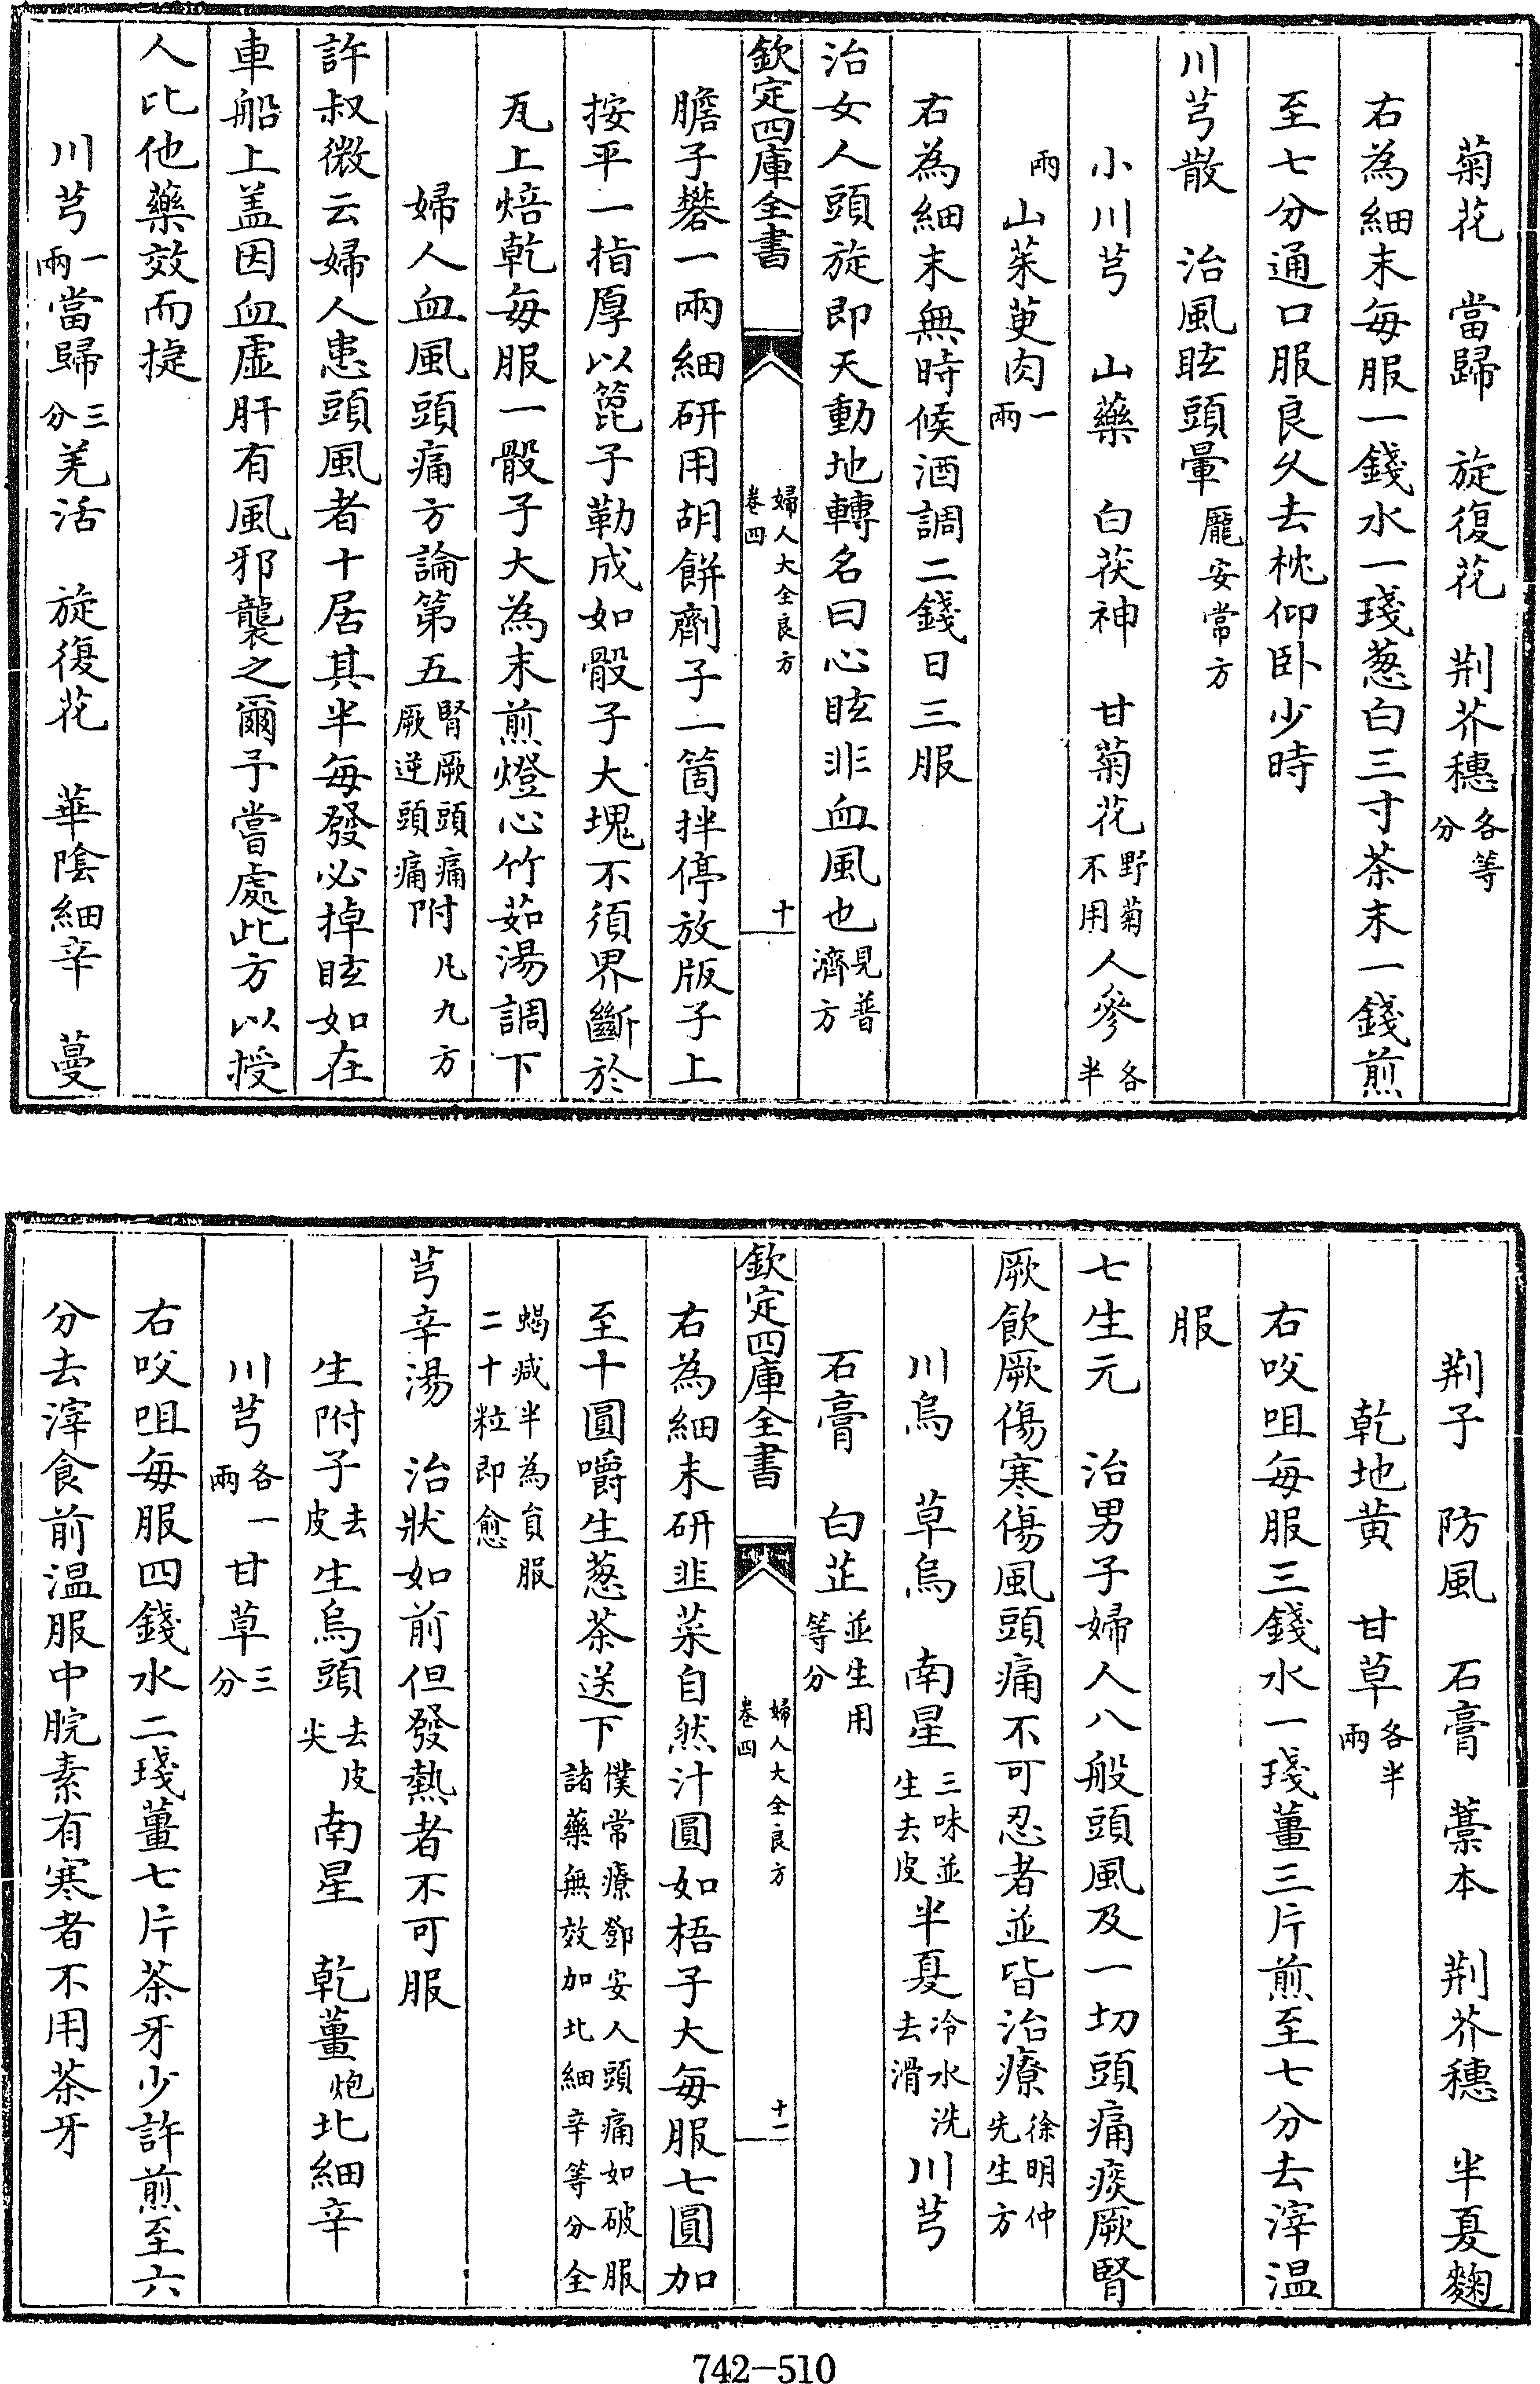 菊花　當歸　旋復花　荆芥穗各等分
右為細末每服一錢水一琖葱白三寸茶末一錢煎
至七分通口服良久去枕仰卧少時
川芎散　治風眩頭暈龎安常方
小川芎　山藥　白茯神　甘菊花野菊不用人參各半
兩山茱萸肉一兩
右為細末無時候酒調二錢日三服
治女人頭旋即天動地轉名曰心眩非血風也見普濟方
欽定四庫全書　婦人大全良方卷四　十
膽子礬一兩細研用胡餅劑子一箇拌停放版子上
按平一指厚以篦子勒成如骰子大塊不須界斷於
瓦上焙乾每服一骰子大為末煎燈心竹茹湯調下
婦人血風頭痛方論第五腎厥頭痛厥逆頭痛附　凡九方
許叔微云婦人患頭風者十居其半每發必掉眩如在
車船上盖因血虛肝有風邪襲之爾予嘗處此方以授
人比他藥效而捷
川芎一兩當歸三分羌活　旋復花　華陰細辛　蔓
荆子　防風　石膏　藁本　荆芥穗　半夏麴
乾地黄　甘草各半兩
右㕮咀每服三錢水一琖薑三片煎至七分去滓温
服
七生元　治男子婦人八般頭風及一切頭痛痰厥腎
厥飲厥傷寒傷風頭痛不可忍者並皆治療徐明仲先生方
川烏　草烏　南星三味並生去皮半夏冷水洗去滑川芎
石膏　白芷並生用等分
欽定四庫全書　婦人大全良方卷四　十一
右為細末研韭菜自然汁圓如梧子大每服七圓加
至十圓嚼生葱茶送下僕常療鄧安人頭痛如破服諸藥無效加北細辛等分全
蝎减半為貟服二十粒即愈
芎辛湯　治狀如前但發熱者不可服
生附子去皮生烏頭去皮尖南星　乾薑炮北細辛
川芎各一兩甘草三分
右㕮咀每服四錢水二琖薑七片茶牙少許煎至六
分去滓食前温服中脘素有寒者不用茶牙
742-510